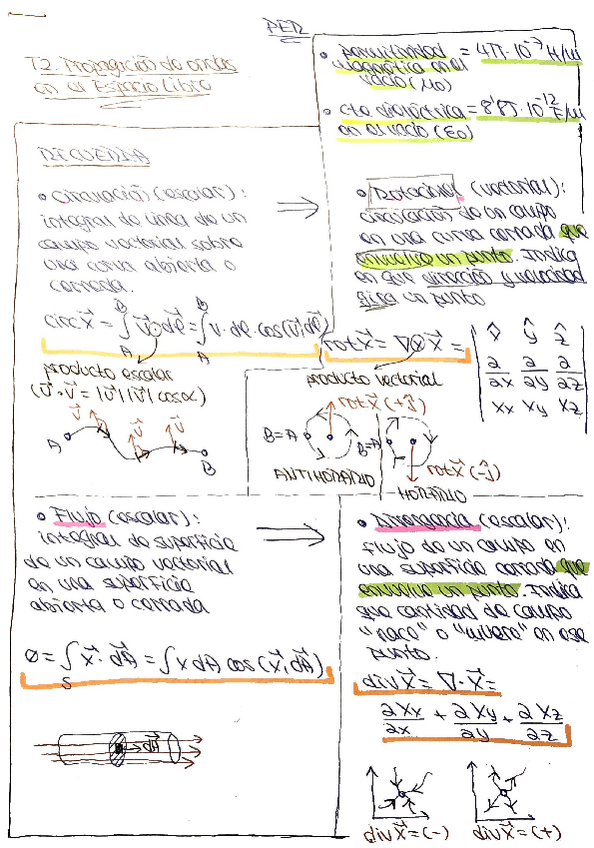 PER
T2. Propagación de ondas
en el Espacio Libre
• permitividad = 4π·10⁻⁷ H/m
magnética en el
vacío (μ₀)
• cte dieléctrica = 8'85·10⁻¹² F/m
en el vacío (ε₀)
RECUERDA
• Circulación (escalar):
integral de línea de un
campo vectorial sobre
una curva abierta o
cerrada.
circX⃗ = ∫_A^B V⃗·dl⃗ = ∫_A^B V·dl·cos(V⃗,dl⃗)
producto escalar
(U⃗·V⃗ = |U⃗||V⃗|cosα)
A V⃗ V⃗ V⃗ B
• Rotacional (vectorial):
circulación de un campo
en una curva cerrada que
envuelve un punto. Indica
en que dirección y velocidad
gira un punto
rotX⃗ = ∇⊗X⃗ =
x̂ ŷ ẑ
∂/∂x ∂/∂y ∂/∂z
Xx Xy Xz
producto vectorial
rotX⃗(+ĵ)
B=A B=A
ANTIHORARIO
rotX⃗(-ĵ)
HORARIO
• Flujo (escalar):
integral de superficie
de un campo vectorial
en una superficie
abierta o cerrada
Ø = ∫_S X⃗·dA⃗ = ∫ X dA cos(X⃗,dA⃗)
dA⃗
• Divergencia (escalar):
flujo de un campo en
una superficie cerrada que
envuelve un punto. Indica
que cantidad de campo
"nace" o "muere" en ese
punto.
divX⃗ = ∇·X⃗ =
∂Xx/∂x + ∂Xy/∂y + ∂Xz/∂z
divX⃗=(-) divX⃗=(+)